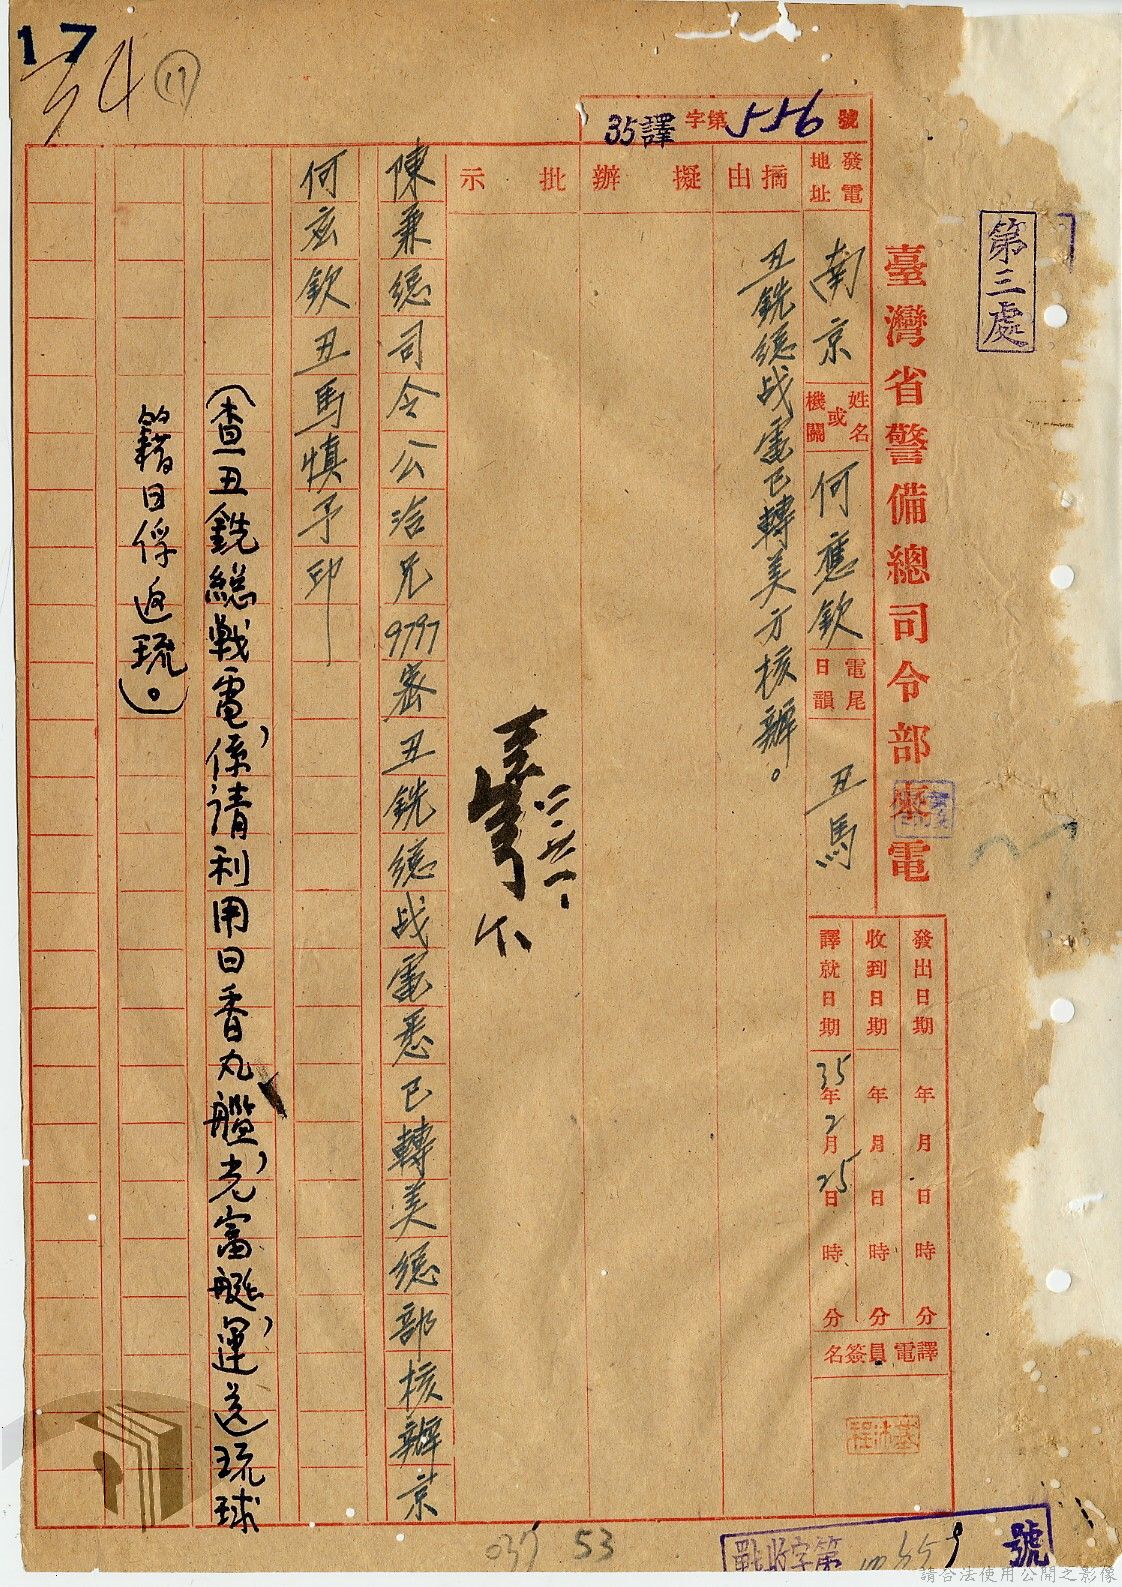 17
34
⑰
35譯字第556號
第三處
臺灣省警備總司令部來電
發電地址
南京
姓名或機關
何應欽
電尾日韻
丑馬
發出日期 年 月 日 時 分
收到日期 年 月 日 時 分
譯就日期 35年2月25日 時 分
譯電員簽名
摘由
丑銑總战電已轉美方核辦。
擬辦
批示
陳兼總司令公洽兄9797密丑銑總战電悉已轉美總部核辦京
何玄欽丑馬慎予印
(查丑銑總戰電,係請利用日香丸艦,光富艇,運送琉球
的籍日俘返琉。)
037 53
戰收字第 號
請合法使用公開之影像